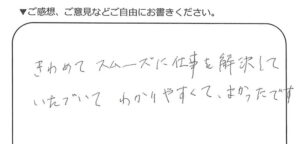 ▼ご感想、ご意見などご自由にお書きください。
きわめて スムーズに仕事を解決して
いただいて わかりやすくて、よかったです